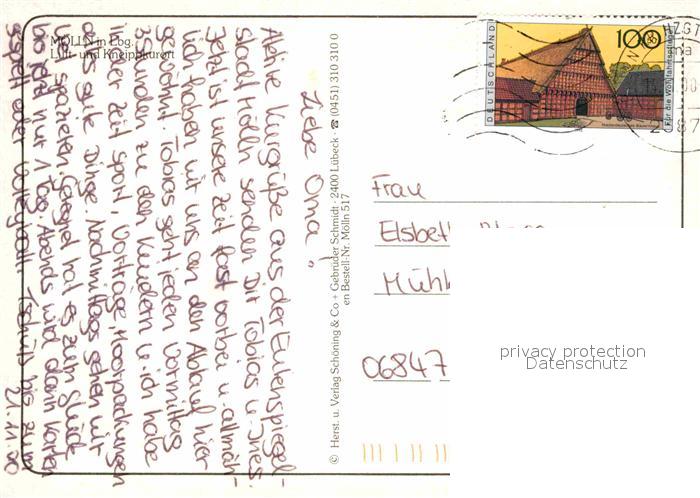 MÖLLN in Lbg.
Luft- und Kneippkurort
Liebe Oma!
Kurgrüße aus der Eulenspiegel-
stadt Mölln senden Dir Tobias u. Ines.
Jetzt ist unsere Zeit fast vorbei u. allmäh-
lich haben wir uns an den Ablauf hier
gewöhnt. Tobias geht jeden Vormittag
3 Stunden zu den Kindern u. ich habe
in der Zeit Sport, Vorträge, Moorpackungen
alles gute Dinge. Nachmittags gehen wir
spazieren. Geregnet hat es zum Glück
bis jetzt nur 1 Tag. Abends wird dann Karten
gespielt oder Volleyball. Tschüß bis zum
21.11.00
© Herst. u. Verlag Schöning & Co + Gebrüder Schmidt · 2400 Lübeck · ☎ (0451) 310 310 0
en Bestell-Nr. Mölln 517
DEUTSCHLAND
100
Für die Wohlfahrtspflege
HZGT
Frau
Elsbet
Mühl
06847
privacy protection
Datenschutz